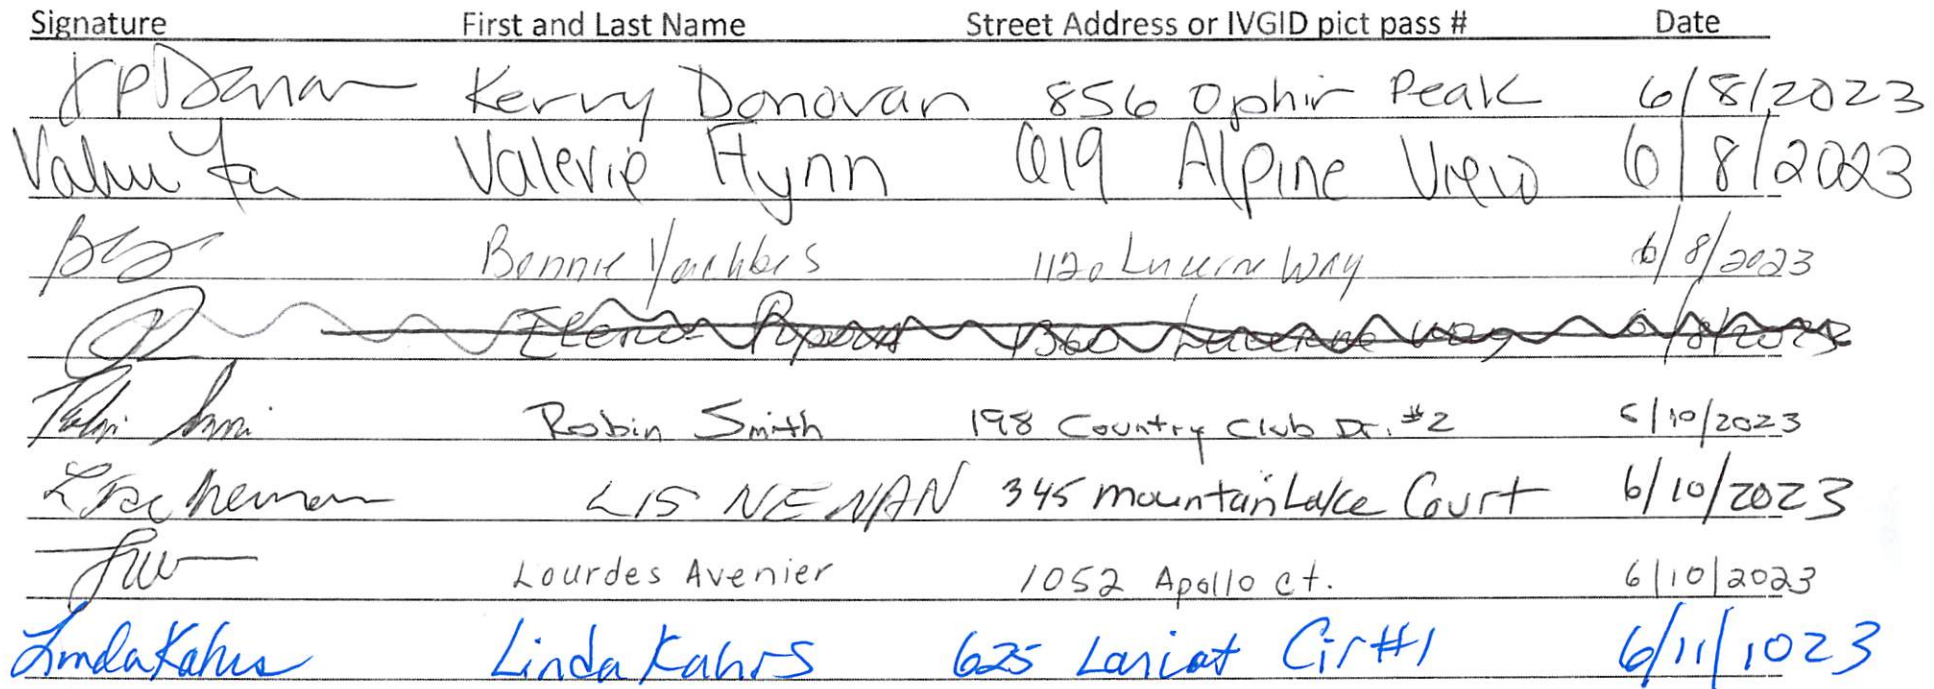 Signature First and Last Name Street Address or IVGID pict pass # Date
Kerry Donovan 856 Ophir Peak 6/8/2023
Valerie Flynn 619 Alpine View 6/8/2023
Bonnie 1120 Way 6/8/2023
1360 Way 6/8/2023
Robin Smith 198 Country Club Dr. #2 6/10/2023
LIS NENAN 345 Mountain Lake Court 6/10/2023
Lourdes Avenier 1052 Apollo ct. 6/10/2023
Linda Kahrs Linda Kahrs 625 Lariat Cir #1 6/11/1023